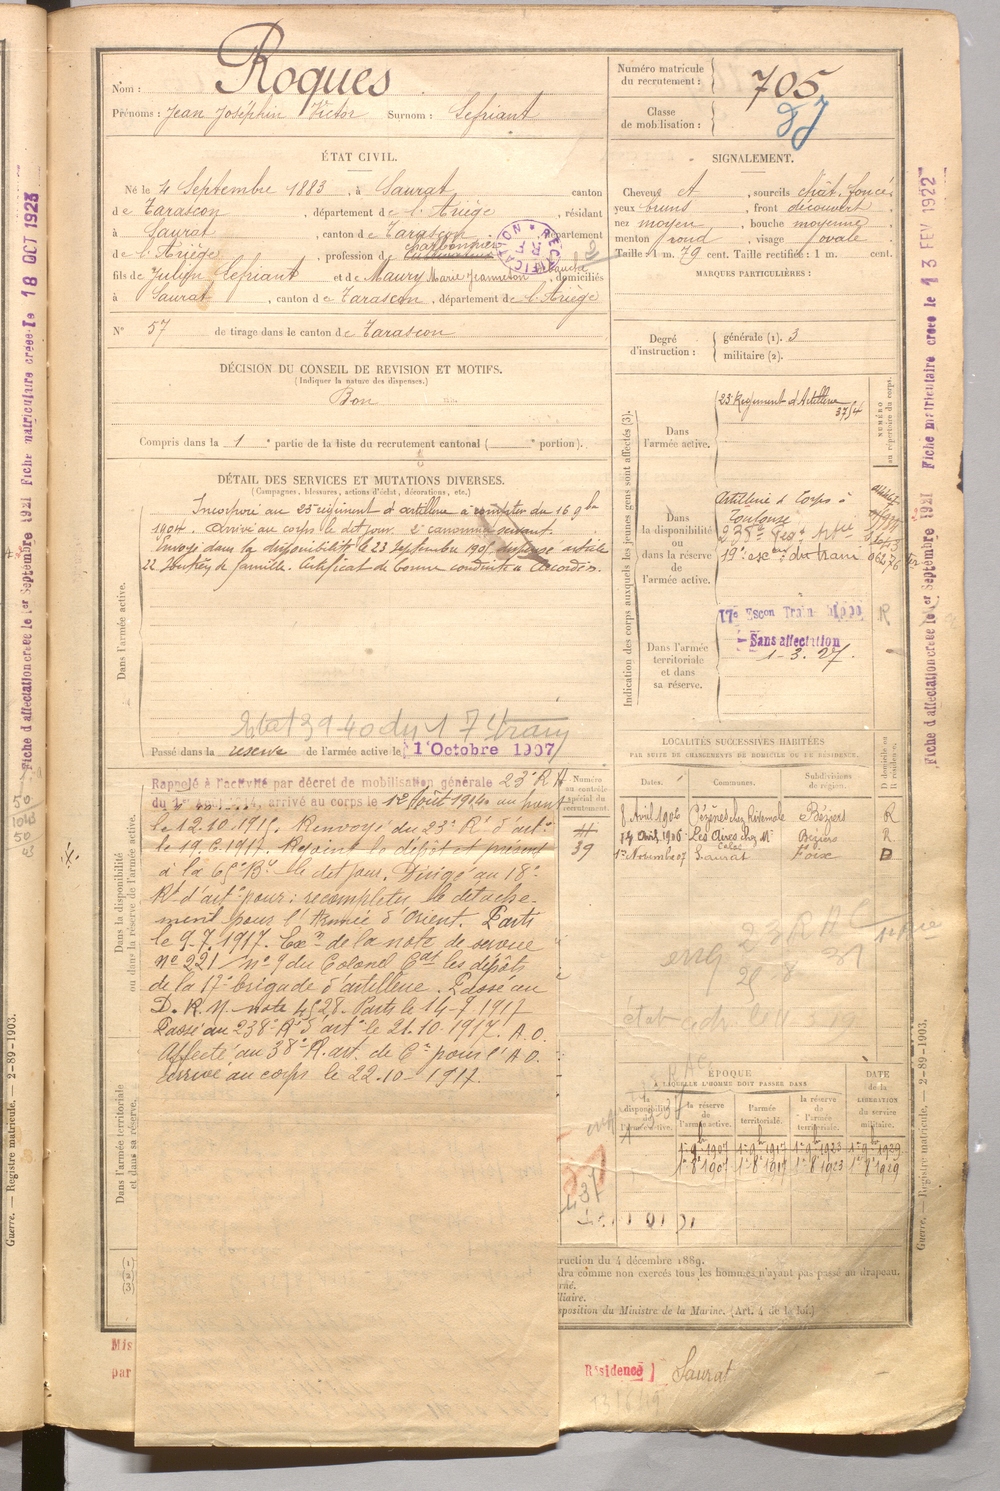 Nom : Roques
Prénoms : Jean Joséphin Victor Surnom : Lefriant
Numéro matricule du recrutement : 705
Classe de mobilisation :
ÉTAT CIVIL.
Né le 4 Septembre 1883, à Saurat, canton
de Tarascon, département de l'Ariège, résidant
à Saurat, canton de Tarascon, département
de l'Ariège, profession de charbonnier
fils de Julien Lefriant et de Maury Marie Jeanneton, domiciliés
à Saurat, canton de Tarascon, département de l'Ariège
RECTIFICATION
R F
N° 57 de tirage dans le canton de Tarascon
SIGNALEMENT.
Cheveux ct, sourcils chât. foncé
yeux bruns, front découvert
nez moyen, bouche moyenne
menton rond, visage ovale
Taille : 1 m. 79 cent. Taille rectifiée : 1 m. cent.
MARQUES PARTICULIÈRES :
Degré d'instruction : générale (1). 3
militaire (2).
DÉCISION DU CONSEIL DE REVISION ET MOTIFS.
(Indiquer la nature des dispenses.)
Bon
Compris dans la 1e partie de la liste du recrutement cantonal ( e portion).
DÉTAIL DES SERVICES ET MUTATIONS DIVERSES.
(Campagnes, blessures, actions d'éclat, décorations, etc.)
Dans l'armée active.
Incorporé au 23e régiment d'artillerie à compter du 16 9bre
1904. Arrivé au corps le dit jour. 2e canonnier servant.
Envoyé dans la disponibilité le 23 Septembre 1905 dispensé article
22. Soutien de famille. Certificat de bonne conduite accordé.
Passé dans la réserve de l'armée active le 1 Octobre 1907
Dans la disponibilité ou dans la réserve de l'armée active.
Rappelé à l'activité par décret de mobilisation générale 23e RA
du 1er Août 1914, arrivé au corps le 12 Août 1914. au front
le 12.10.1915. Renvoyé du 23e Rt d'artie
le 19.6.1917. Rejoint le dépôt et présent
à la 65e Bie le dit jour. Dirigé au 18e
Rt d'artie pour : recompléter le détache-
ment pour l'Armée d'Orient. Parti
le 9-7-1917. Exon de la note de service
n° 221 / n° 9 du Colonel Cdt les dépôts
de la 17e brigade d'artillerie. Passé au
D. R. M. note 4528. Parti le 14-7-1917
Passé au 238e Rt d'artie le 21.10.1917. A.O.
Affecté au 38e R. art. de Cne pour l'A.O.
arrivé au corps le 22-10-1917.
Dans l'armée territoriale et dans sa réserve.
Indication des corps auxquels les jeunes gens sont affectés (3).
NUMÉRO au répertoire du corps.
Dans l'armée active.
23 Régiment d'Artillerie
3754
Dans la disponibilité ou dans la réserve de l'armée active.
Artillerie d Corps à
Toulouse
19e escon du train
Dans l'armée territoriale et dans sa réserve.
17e Escon Train
Sans affectation
1-3.27.
R
LOCALITÉS SUCCESSIVES HABITÉES
PAR SUITE DE CHANGEMENTS DE DOMICILE OU DE RÉSIDENCE.
Numéro au contrôle spécial du recrutement.
39
Dates. Communes. Subdivisions de région. D domicile ou R résidence.
8 Avril 1906 Pézenas chez Rivemale Béziers R
14 Avril 1906 Les Aires chez Mr Calas Béziers R
1er Novembre 07 Saurat Foix D
ÉPOQUE
À LAQUELLE L'HOMME DOIT PASSER DANS
DATE de la LIBÉRATION du service militaire.
la disponibilité de l'armée active.
la réserve de l'armée active.
l'armée territoriale.
la réserve de l'armée territoriale.
1er 9b 1907 1er 9b 1917 1er 9b 1923 1er 9b 1929
1er 8b 1907 1er 8b 1917 1er 8b 1923 1er 8b 1929
ruction du 4 décembre 1889.
dra comme non exercés tous les hommes n'ayant pas passé au drapeau.
liaire.
sposition du Ministre de la Marine. (Art. 4 de la loi.)
Mis
par
Résidence Saurat
Fiche d'affectation créée le 1er Septembre 1921 Fiche matriculaire créée le 18 OCT 1923
Fiche d'affectation créée le 1er Septembre 1921 Fiche matriculaire créée le 13 FEV 1922
Guerre. — Registre matricule. — 2-89-1903.
Guerre. — Registre matricule. — 2-89-1903.
50
1043
50
43